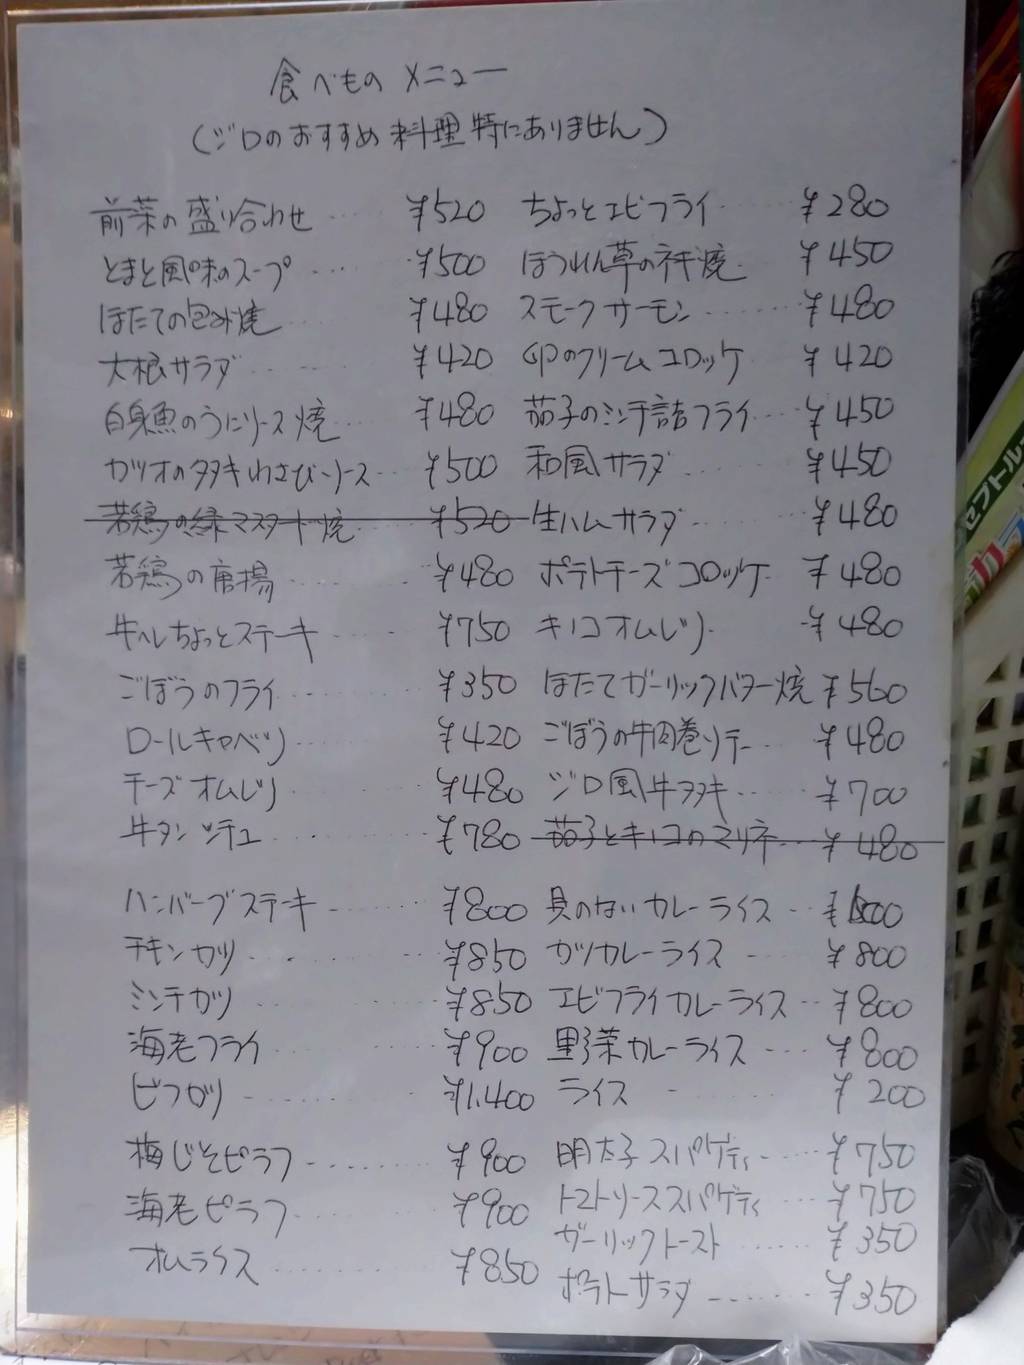 食べもの メニュー
(ジロのおすすめ 料理 特にありません)
前菜の盛り合わせ ¥520
とまと風味のスープ ¥500
ほたての包み焼 ¥480
大根サラダ ¥420
白身魚のうにソース焼 ¥480
カツオのタタキわさびソース ¥500
若鶏の緑マスタード焼 ¥520
若鶏の唐揚 ¥480
牛ヘレちょっとステーキ ¥750
ごぼうのフライ ¥350
ロールキャベツ ¥420
チーズオムレツ ¥480
牛タンシチュー ¥780
ハンバーグステーキ ¥800
チキンカツ ¥850
ミンチカツ ¥850
海老フライ ¥900
ビフカツ ¥1,400
梅じそピラフ ¥900
海老ピラフ ¥900
オムライス ¥850
ちょっとエビフライ ¥280
ほうれん草のネギ焼 ¥450
スモークサーモン ¥480
卵のクリームコロッケ ¥420
茄子のミンチ詰フライ ¥450
和風サラダ ¥450
生ハムサラダ ¥480
ポテトチーズコロッケ ¥480
キノコオムレツ ¥480
ほたてガーリックバター焼 ¥560
ごぼうの牛肉巻ソテー ¥480
ジロ風牛タタキ ¥700
茄子とキノコのマリネ ¥480
具のないカレーライス
カツカレーライス ¥800
エビフライカレーライス ¥800
野菜カレーライス ¥800
ライス ¥200
明太子スパゲティ ¥750
トマトソーススパゲティ ¥750
ガーリックトースト ¥350
ポテトサラダ ¥350
セプトル